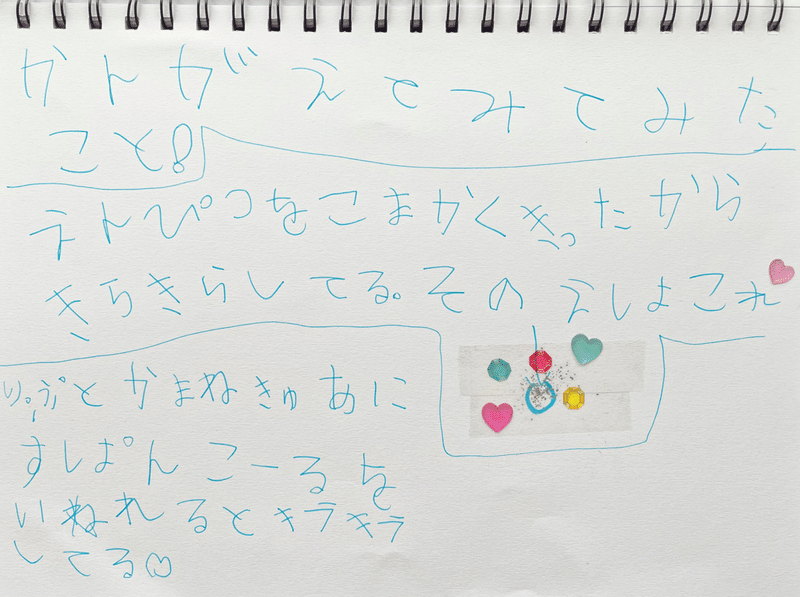 かんがえてみてみた
こと!
えんぴつをこまかくきったから
きらきらしてる。そのえしょこれ
りっぷとかまねきゅあに
すぱんこーるを
いねれるとキラキラ
してる